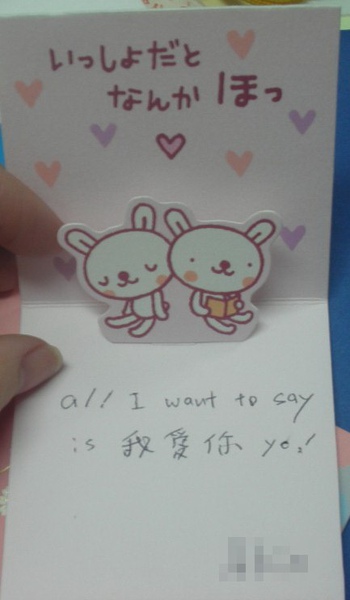 いっしょだと
なんか ほっ
all I want to say
is 我愛你 yo!